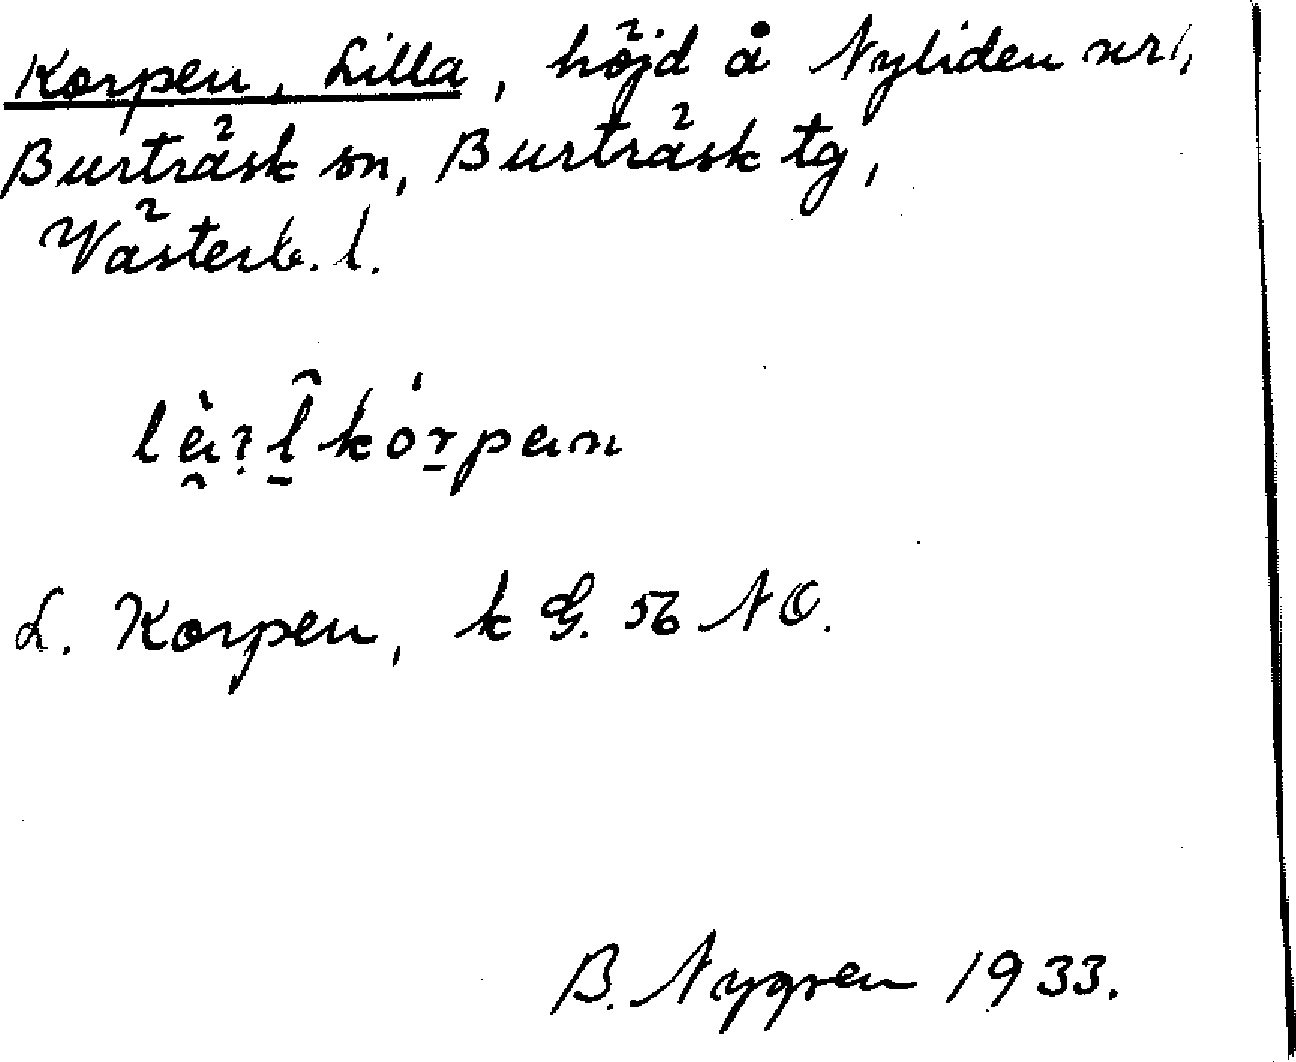 Korpen, Lilla, höjd å Nyliden nr 1,
Burträsk sn, Burträsk tg,
Västerb. l.
L. Korpen, k G. 56 NO.
B. Nygren 1933.